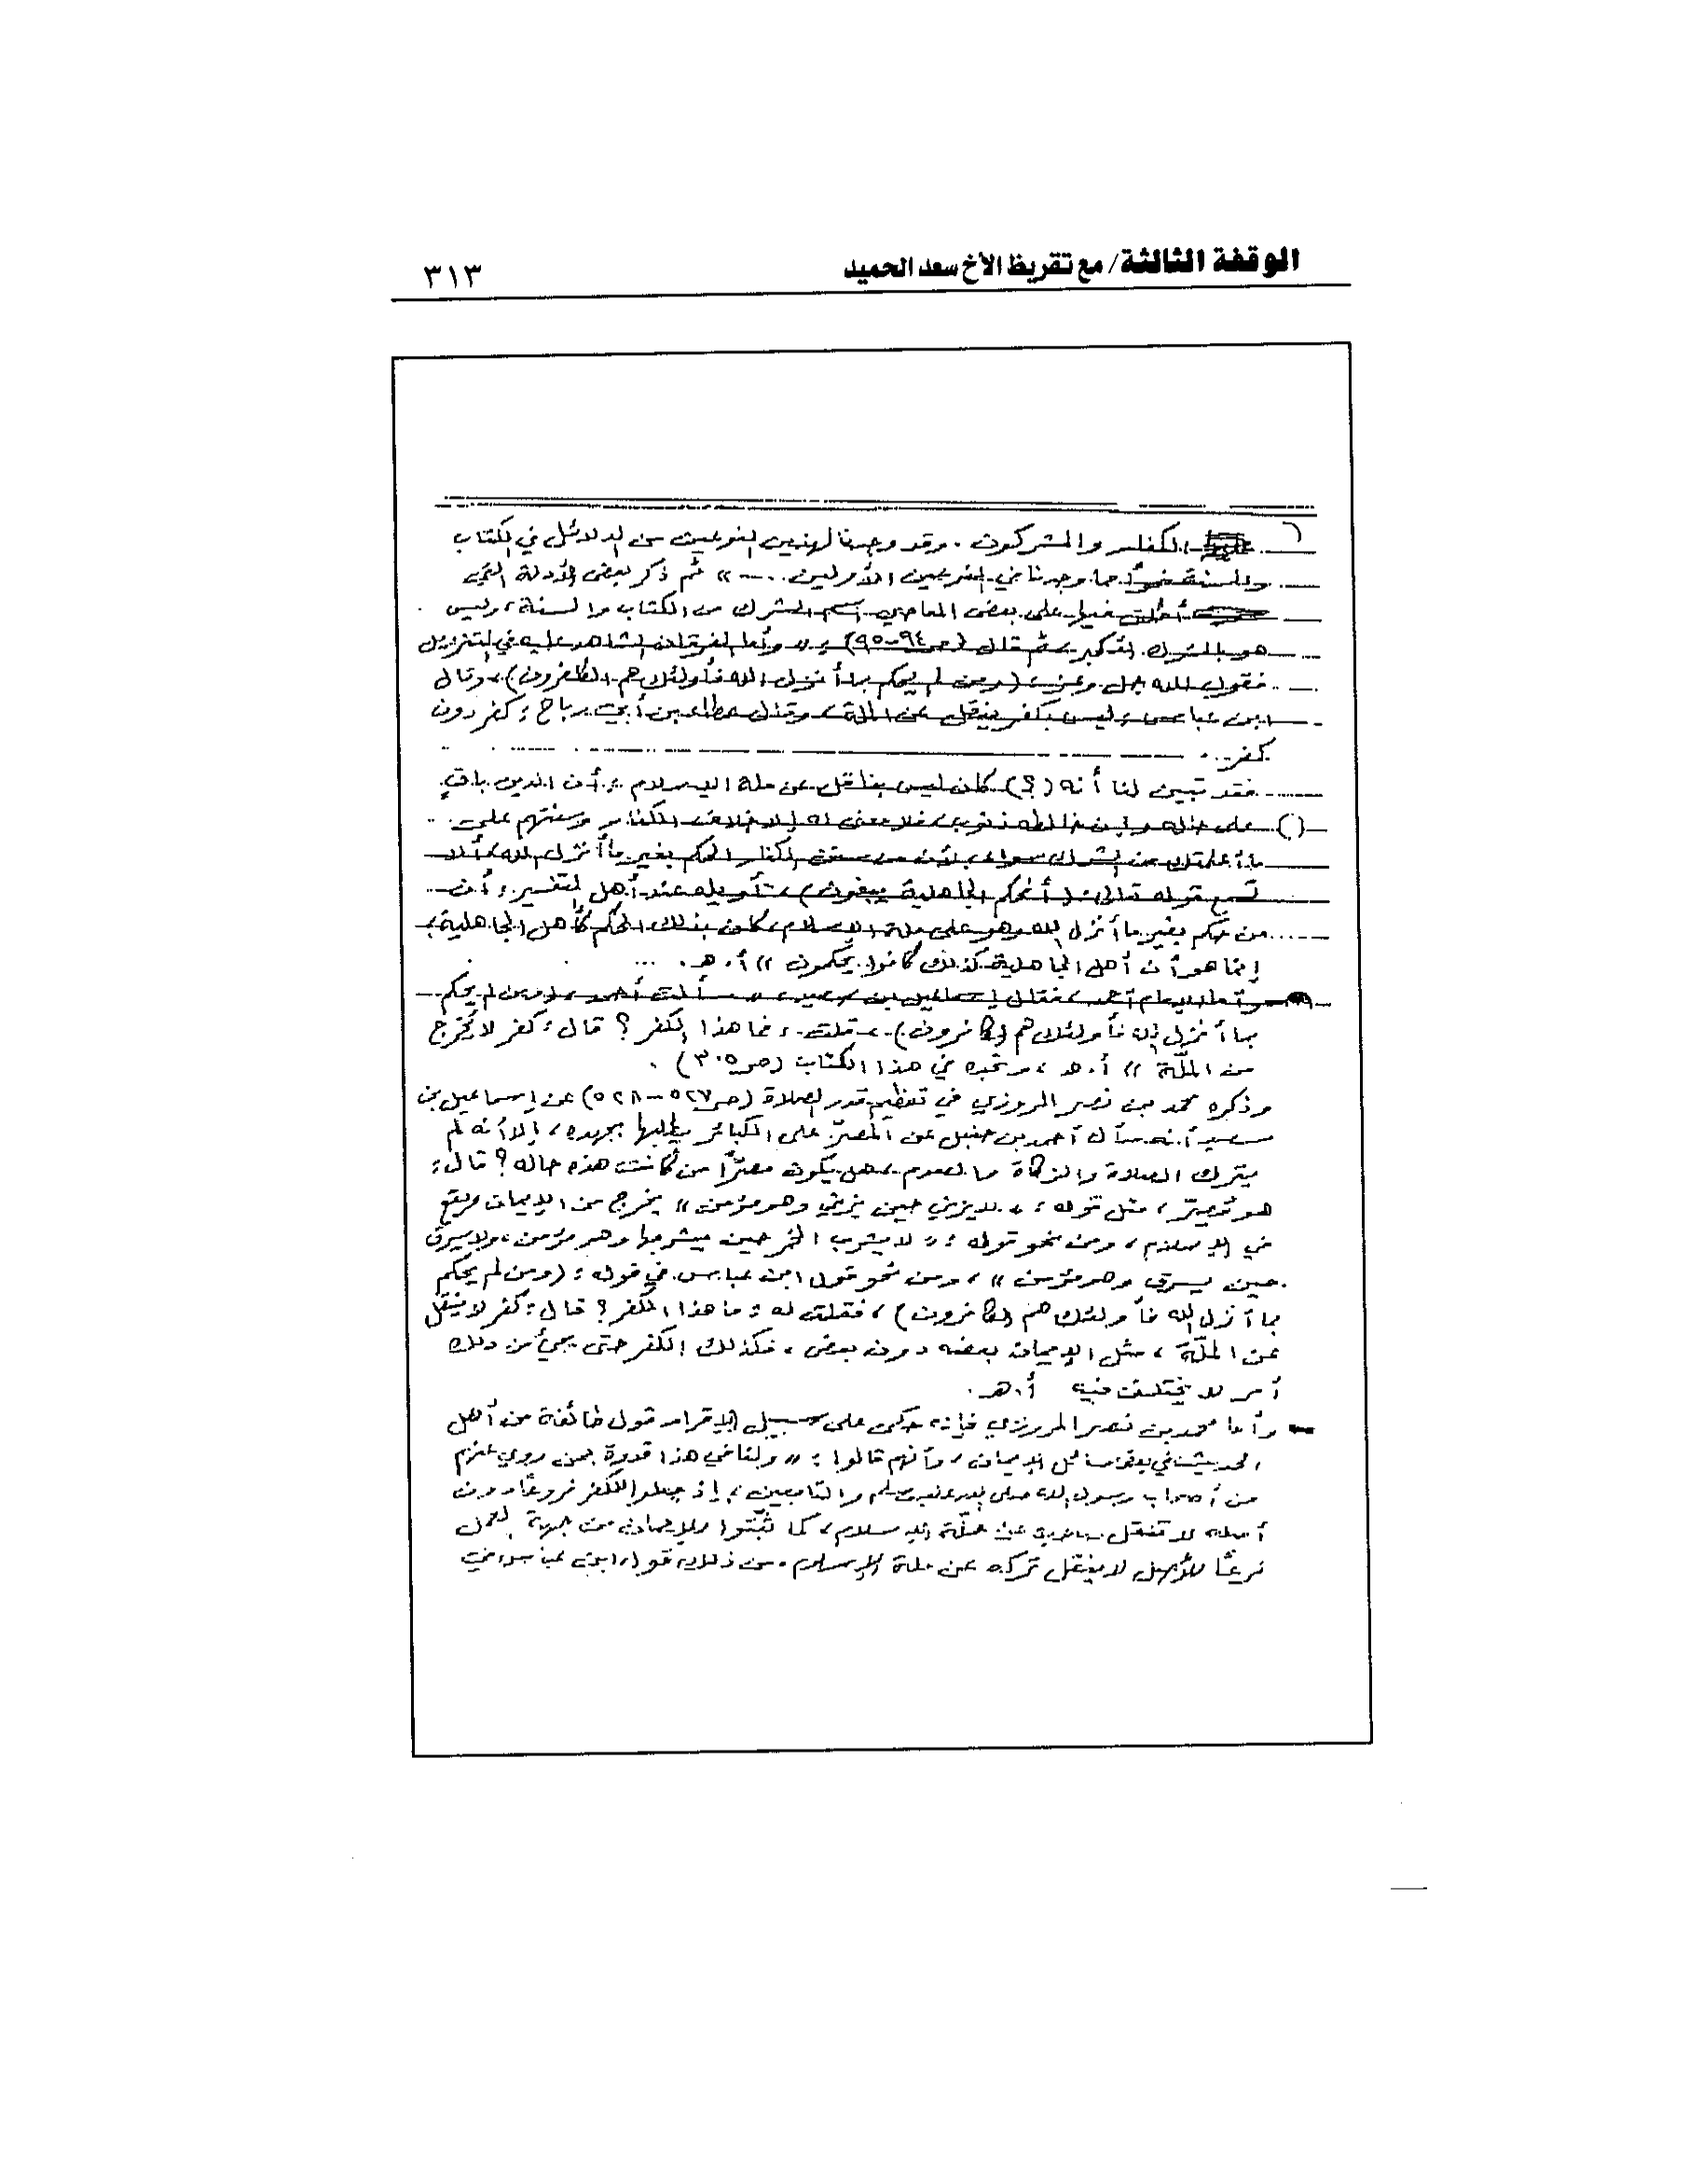 الوقفة الثالثة/ مع تقريظ الأخ سعد الحميد
٣١٣
٦
الكفار والمشركون. وقد وجدنا لهذين النوعين من الدلائل في الكتاب
والسنة نحوًا مما وجدنا في النوعين الأولين...» ثم ذكر بعض الأدلة التي
أطلق فيها على بعض المعاصي اسم الشرك من الكتاب والسنة، وليس
هو بالشرك الأكبر، ثم قال (ص ٩٤-٩٥): «وأما الفرقان الشاهد عليه في التنزيل
فقول الله جل وعز: (ومن لم يحكم بما أنزل الله فأولئك هم الكافرون)، وقال
ابن عباس: ليس بكفر ينقل عن الملة، وقال عطاء بن أبي رباح: كفر دون
كفر.
فقد تبين لنا أنه (؟) كان ليس بناقل عن ملة الإسلام: أن الدين باقٍ
() على حاله وإن خالطه ذنوب، فلا معنى له إلا خلاف الكفار وسنتهم على
ما أعلمتك من الشرك سواء، لأن من سنن الكفار الحكم بغير ما أنزل الله، ألا
تسمع قوله تعالى: (أفحكم الجاهلية يبغون)، تأويله عند أهل التفسير: أن
من حكم بغير ما أنزل الله وهو على ملة الإسلام، كان بذلك الحكم كأهل الجاهلية؛
إنما هو أن أهل الجاهلية كذلك كانوا يحكمون» أ.هـ. ...
وأما الإمام أحمد، فقال إسماعيل بن سعيد: «سألت أحمد: (ومن لم يحكم
بما أنزل الله فأولئك هم الكافرون)، قلت: فما هذا الكفر؟ قال: كفر لا يخرج
من الملّة» أ.هـ، وتجده في هذا الكتاب (ص ٣٠٥).
وذكره محمد بن نصر المروزي في تعظيم قدر الصلاة (ص ٥٢٧-٥٢٨) عن إسماعيل بن
سعيد أنه سأل أحمد بن حنبل عن المصرّ على الكبائر يطلبها بجهده، إلا أنه لم
يترك الصلاة والزكاة والصوم، هل يكون مصرًّا من كانت هذه حاله؟ قال:
هو مصرّ، مثل قوله: «لا يزني حين يزني وهو مؤمن» يخرج من الإيمان ويقع
في الإسلام، ومن نحو قوله: «لا يشرب الخمر حين يشربها وهو مؤمن، ولا يسرق
حين يسرق وهو مؤمن»، ومن نحو قول ابن عباس في قوله: (ومن لم يحكم
بما أنزل الله فأولئك هم الكافرون)، فقلت له: ما هذا الكفر؟ قال: كفر لا ينقل
عن الملّة، مثل الإيمان بعضه دون بعض، فكذلك الكفر حتى يجيء من ذلك
أمر لا يختلف فيه أ.هـ.
وأما محمد بن نصر المروزي فإنه حكى على سبيل الإقرار قول طائفة من أهل
الحديث في بعض مسائل الإيمان، وأنهم قالوا: «ولنا في هذا قدوة بمن روي عنهم
من أصحاب رسول الله صلى الله عليه وسلم والتابعين؛ إذ جعلوا للكفر فروعًا دون
أصله لا تنقل صاحبه عن ملّة الإسلام، كما ثبّتوا للإيمان من جهة العمل
فرعًا للأصل لا ينقل تركه عن ملة الإسلام. من ذلك قول ابن عباس في